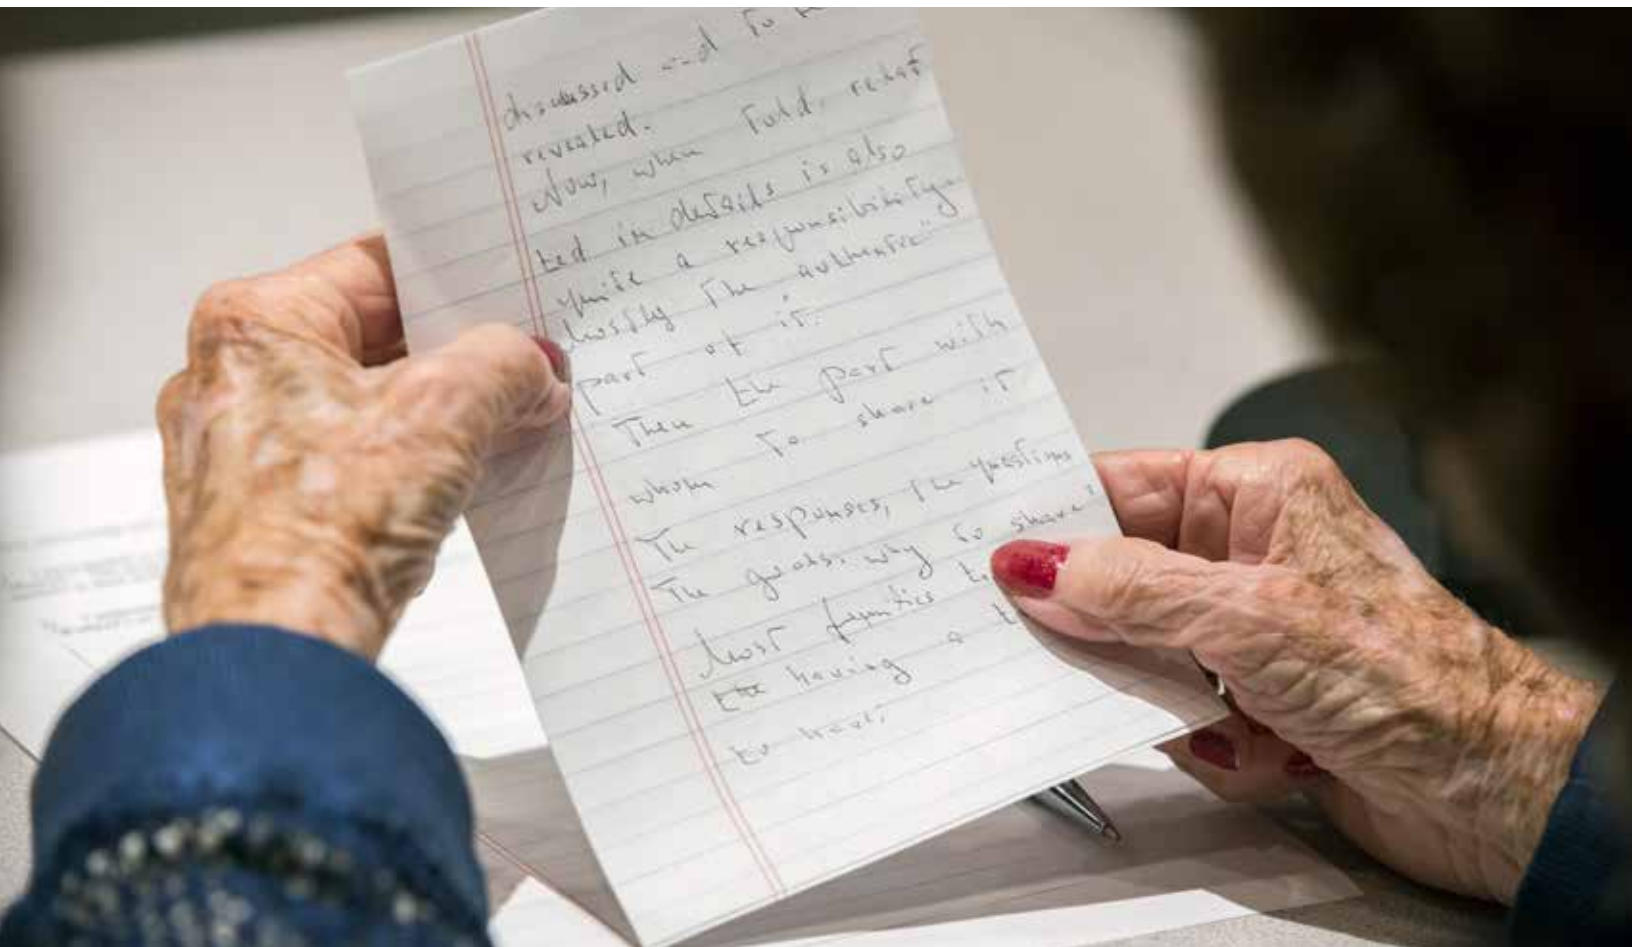 discussed and to
revealed.
Now, when told, relat
ted in details is also
quite a responsibility -
Mostly the authentic"
part of it.
Then the part with
whom to share it
The responses, the questions
The goals, why to share?
Most families
the having a
to heal;